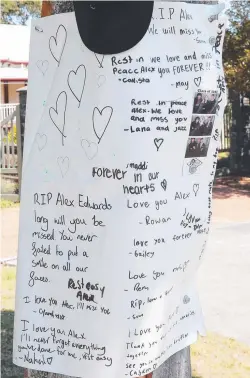 R.I.P Alex
We will miss you
Rest in
Peace Alex
- Callista
We love and will
you FOREVER!!
- may
Rest in peace
Alex - We love
and miss you
- Lana and Jazz
maddi
Forever in our
hearts
Love you Alex
- Rowan
love you forever
- bailey
Love you
RIP Alex Edwards
long will you be
missed You never
failed to put a
smile on all our
faces.
Rest easy
Alex
I love you Alex, I'll miss you
I love you Alex.
I'll never forget everything
you've done for me, rest easy
Rip, love
I love you
Thank you
together
See you